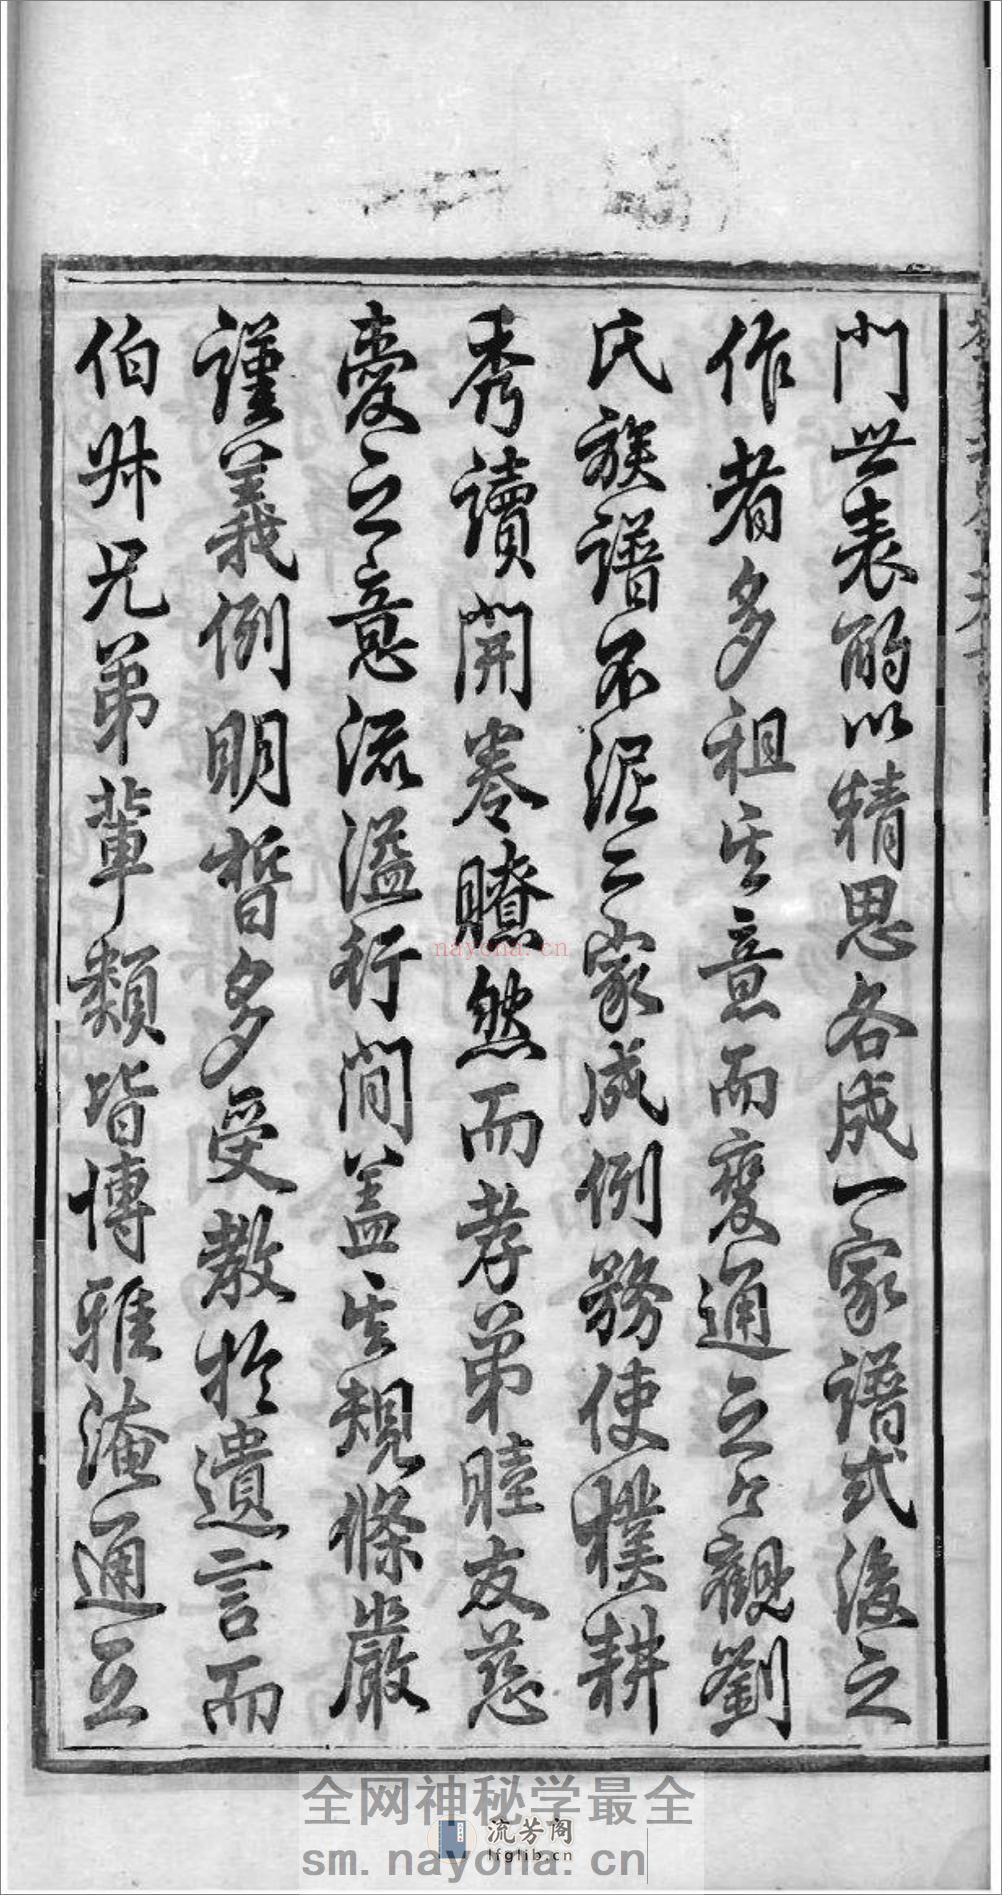 門世表酌以精思各成一家譜式後之
作者多祖其意而變通之今觀劉
氏族譜不泥二家成例務使樸耕
秀讀開卷瞭然而孝弟睦友慈
愛之意流溢行間蓋其規條嚴
謹義例明晳多受教於遺言而
伯叔兄弟輩類皆博雅淹通互
nayona.cn
全网神秘学最全
流芳阁
lfglib.cn
sm.nayona.cn